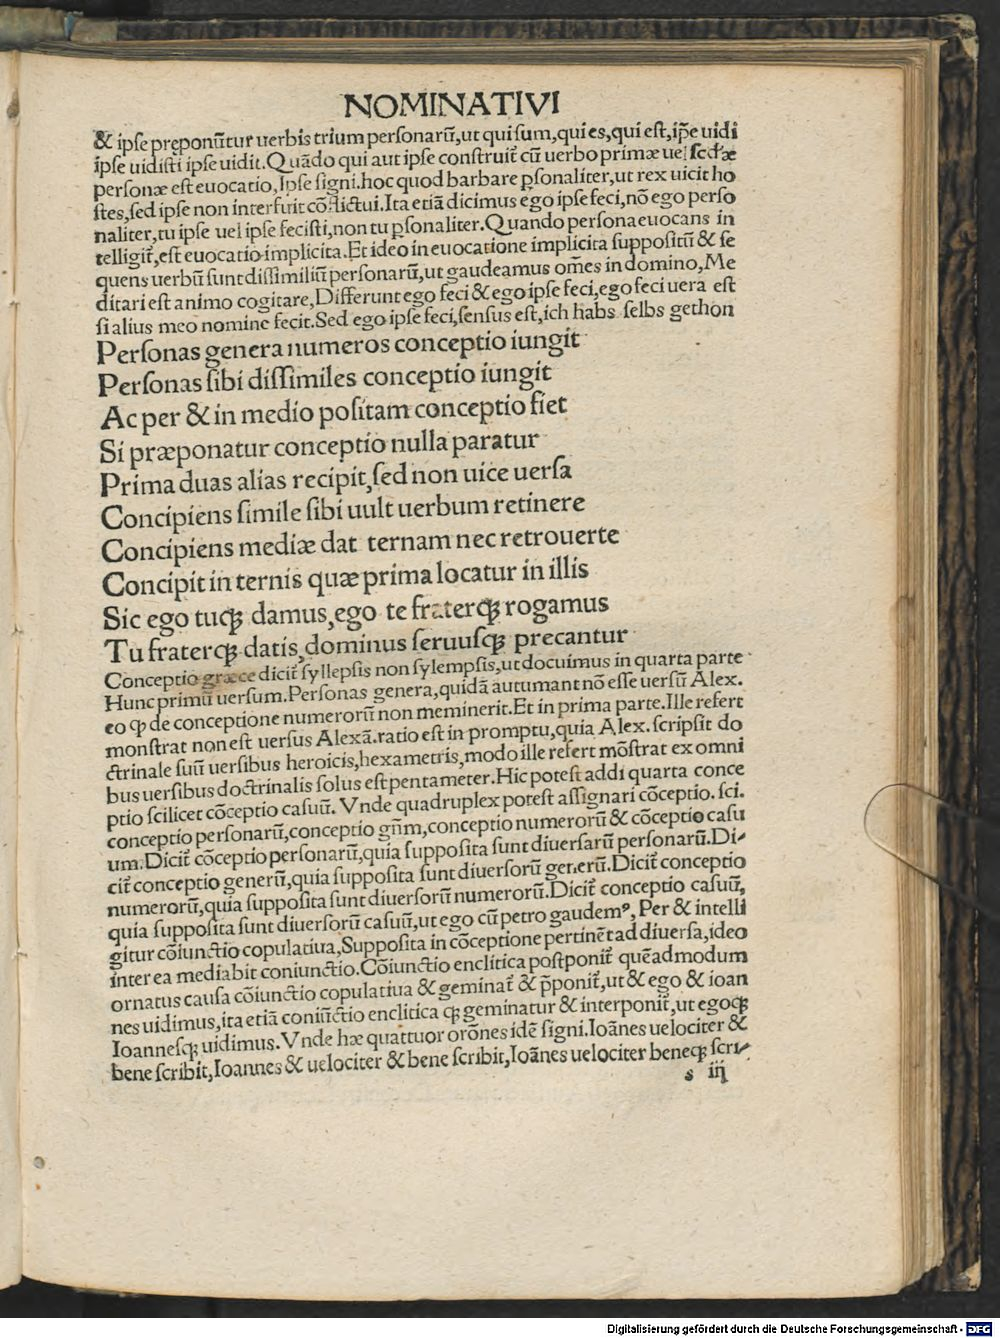 NOMINATIVI
& ipſe pręponũtur uerbis trium perſonarũ,ut qui ſum,qui es,qui eſt,ip̃e uidi
ipſe uidiſti ipſe uidit.Quãdo qui aut ipſe conſtruit̃ cũ uerbo primæ uel ſed̃æ
perſonæ eſt euocatio,Ipſe ſigni.hoc quod barbare ꝑſonaliter,ut rex uicit ho
ſtes,ſed ipſe non interfuit cõflictui.Ita etiã dicimus ego ipſe feci,nõ ego perſo
naliter,tu ipſe uel ipſe feciſti,non tu ꝑſonaliter.Quando perſona euocans in
telligit̃,eſt euocatio implicita.Et ideo in euocatione implicita ſuppoſitũ & ſe
quens uerbũ ſunt diſſimiliũ perſonarũ,ut gaudeamus om̃es in domino,Me
ditari eſt animo cogitare,Differunt ego feci & ego ipſe feci,ego feci uera eſt
ſi alius meo nomine fecit.Sed ego ipſe feci,ſenſus eſt,ich habs ſelbs gethon
Perſonas genera numeros conceptio iungit
Perſonas ſibi diſſimiles conceptio iungit
Ac per & in medio poſitam conceptio fiet
Si præponatur conceptio nulla paratur
Prima duas alias recipit,ſed non uice uerſa
Concipiens ſimile ſibi uult uerbum retinere
Concipiens mediæ dat ternam nec retrouerte
Concipit in ternis quæ prima locatur in illis
Sic ego tuqꝫ damus,ego te fraterqꝫ rogamus
Tu fraterqꝫ datis,dominus ſeruuſqꝫ precantur
Conceptio græce dicit̃ ſyllepſis non ſylempſis,ut docuimus in quarta parte
Hunc primũ uerſum.Perſonas genera,quidã autumant nõ eſſe uerſũ Alex.
eo ꝙ de conceptione numerorũ non meminerit.Et in prima parte.Ille refert
monſtrat non eſt uerſus Alexã.ratio eſt in promptu,quia Alex.ſcripſit do
ctrinale ſuũ uerſibus heroicis,hexametris,modo ille refert mõſtrat ex omni
bus uerſibus doctrinalis ſolus eſt pentameter.Hic poteſt addi quarta conce
ptio ſcilicet cõceptio caſuũ. Vnde quadruplex poteſt aſſignari cõceptio. ſci.
conceptio perſonarũ,conceptio gñm,conceptio numerorũ & cõceptio caſu
um.Dicit̃ cõceptio perſonarũ,quia ſuppoſita ſunt diuerſarũ perſonarũ.Di-
cit̃ conceptio generũ,quia ſuppoſita ſunt diuerſorũ generũ.Dicit̃ conceptio
numerorũ,quia ſuppoſita ſunt diuerſorũ numerorũ.Dicit̃ conceptio caſuũ,
quia ſuppoſita ſunt diuerſorũ caſuũ,ut ego cũ petro gaudemꝰ, Per & intelli
gitur cõiunctio copulatiua,Suppoſita in cõceptione pertinẽt ad diuerſa,ideo
inter ea mediabit coniunctio.Cõiunctio enclitica poſtponit̃ quẽadmodum
ornatus cauſa cõiunctio copulatiua & geminat̃ & p̃ponit̃,ut & ego & ioan
nes uidimus,ita etiã coniũctio enclitica qꝫ geminatur & interponit̃,ut egoqꝫ
Ioanneſqꝫ uidimus. Vnde hæ quattuor orõnes idẽ ſigni.Ioãnes uelociter &
bene ſcribit,Ioannes & uelociter & bene ſcribit,Ioãnes uelociter beneqꝫ ſcri-
s iij
Digitalisierung gefördert durch die Deutsche Forschungsgemeinschaft - DFG